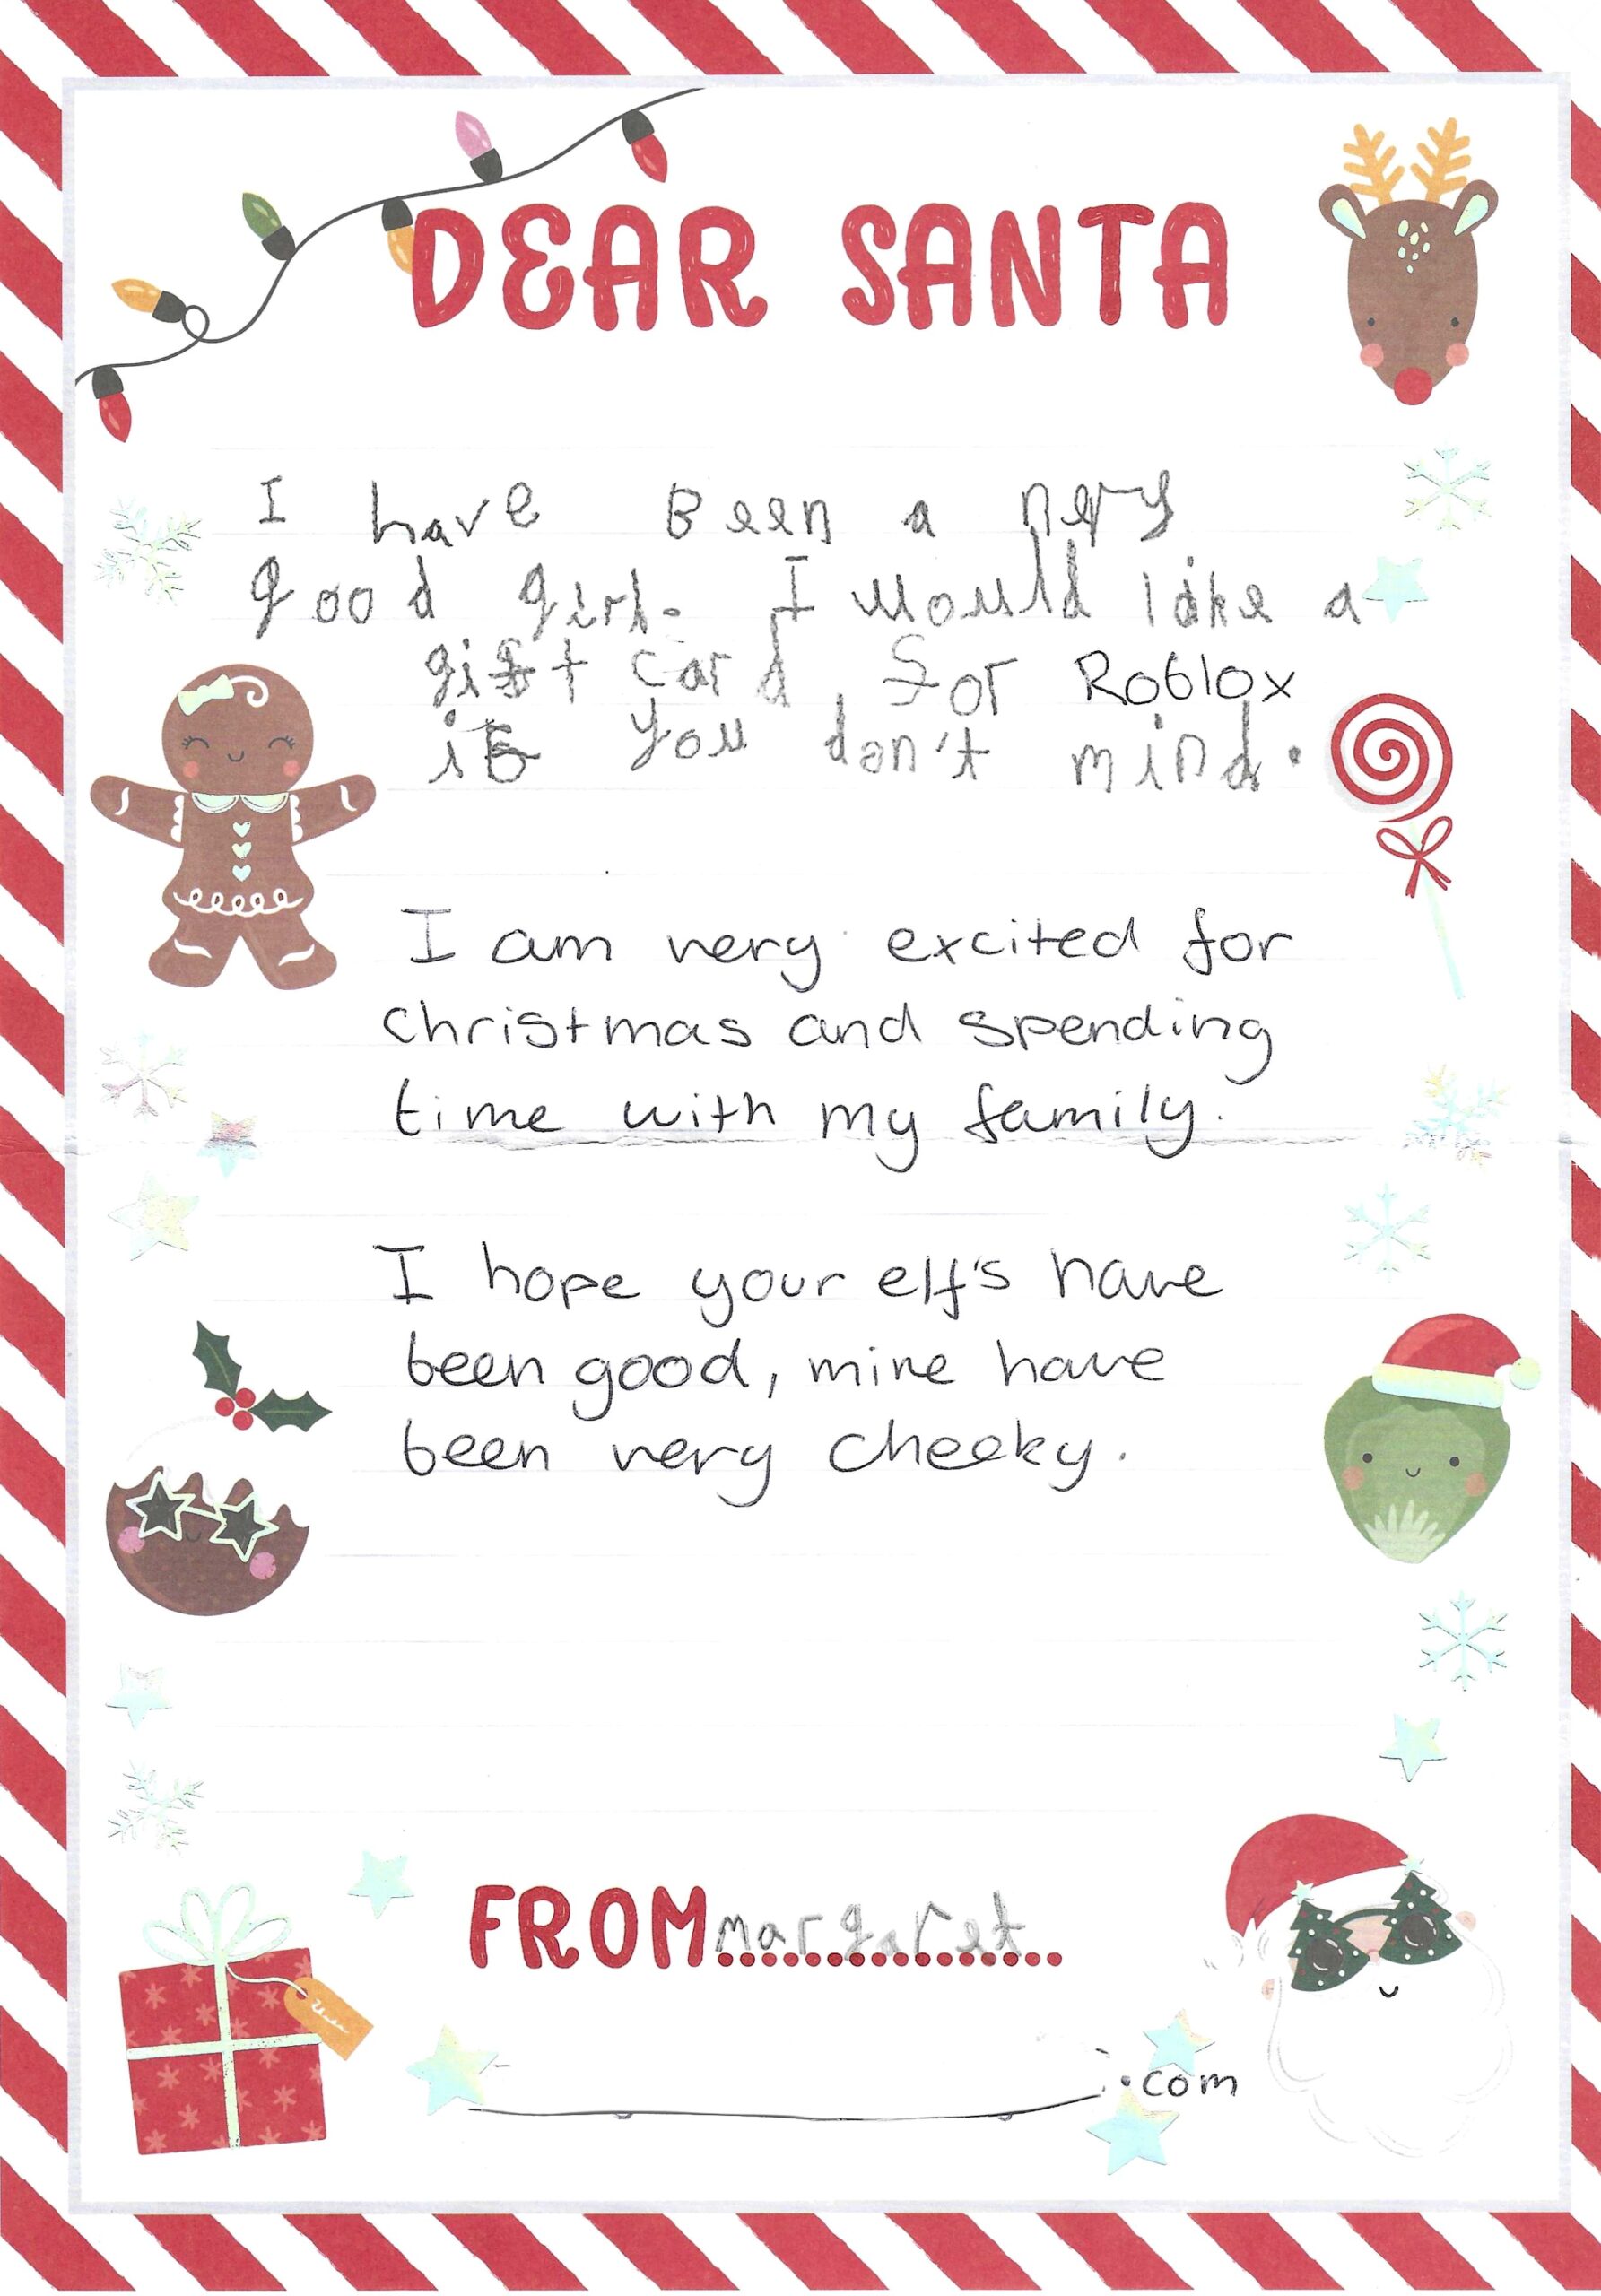 DEAR SANTA
I have Been a very
good girl. I would like a
gift card for Roblox
if you don't mind.
I am very excited for
christmas and spending
time with my family.
I hope your elf's have
been good, mine have
been very cheeky.
FROM margaret
.com